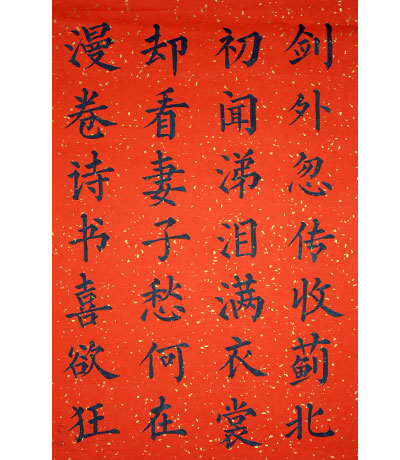 剑外忽传收蓟北
初闻涕泪满衣裳
却看妻子愁何在
漫卷诗书喜欲狂